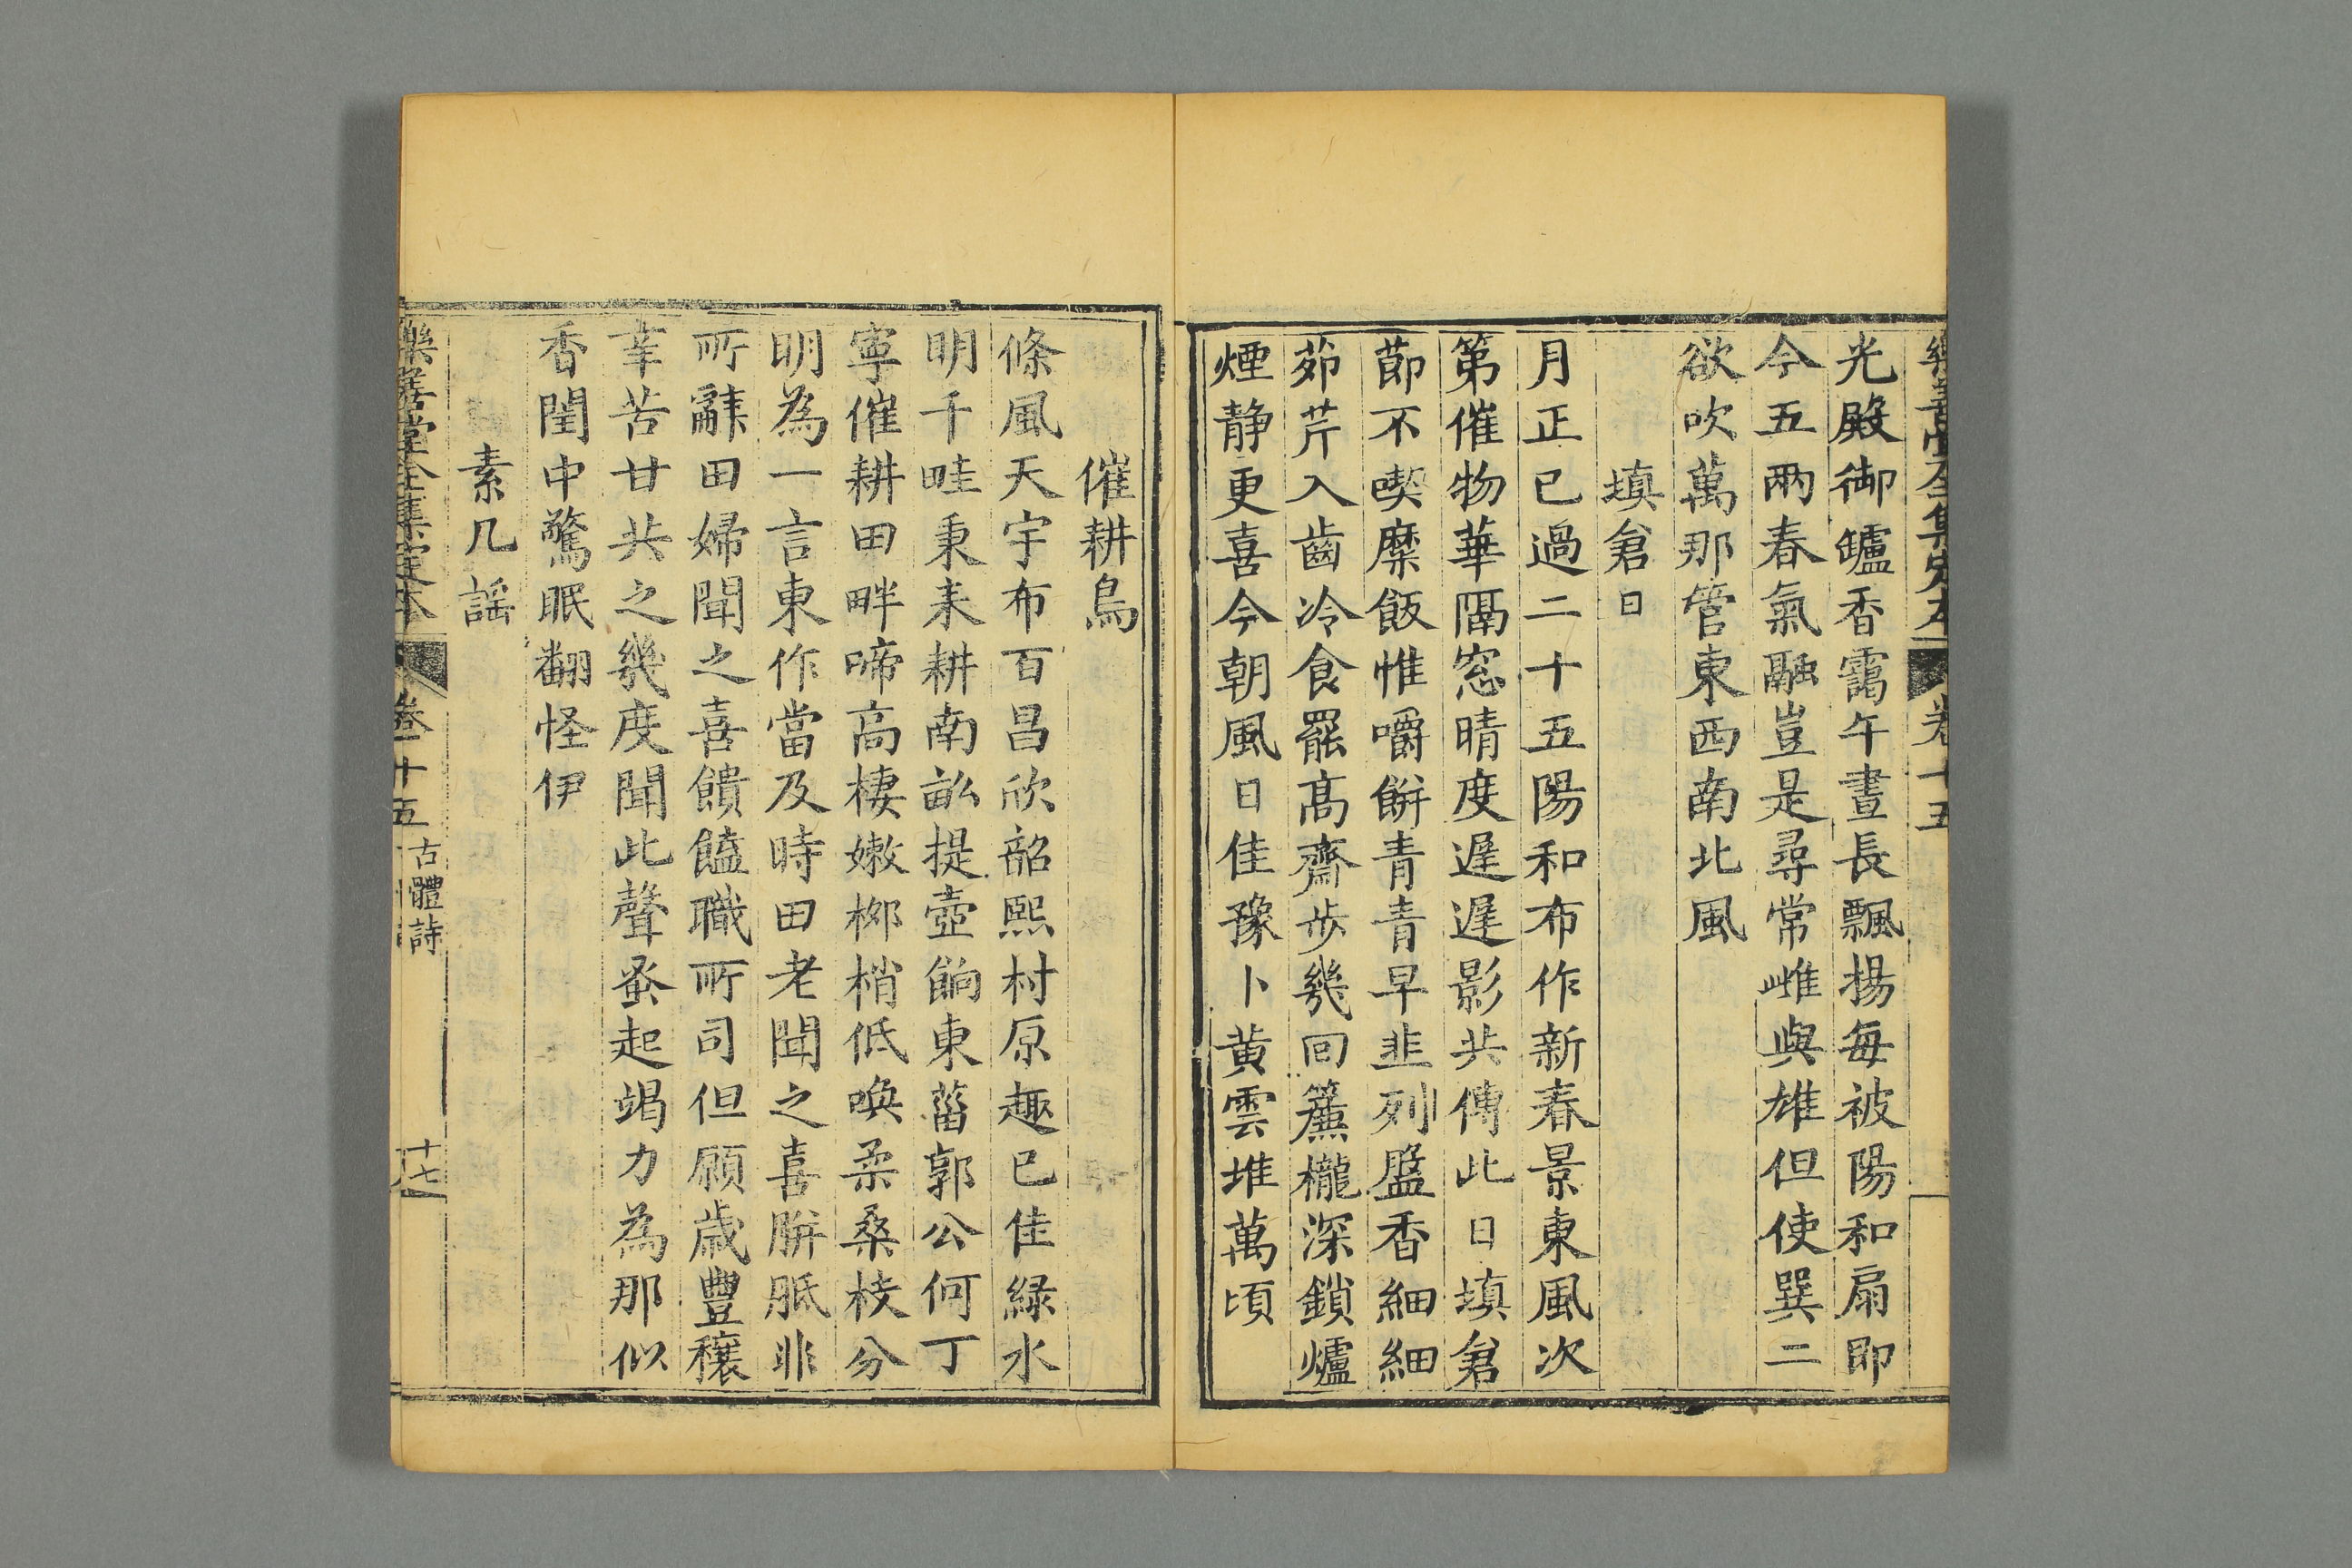 光殿御鑪香靄午晝長飄揚每被陽和扇即
今五兩春氣融豈是尋常雌與雄但使巽二
欲吹萬那管東西南北風
填倉日
月正已過二十五陽和布作新春景東風次
第催物華隔窓晴度遲遲影共傳此日填倉
節不喫糜飯惟嚼餅青青早韭列盤香細細
茆芹入齒冷食罷髙齋步幾回簾櫳深鎖爐
煙静更喜今朝風日佳豫卜黄雲堆萬頃
催耕鳥
條風天宇布百昌欣韶熙村原趣已佳緑水
明千畦秉耒耕南畝提壺餉東菑郭公何丁
寧催耕田畔啼高棲嫩栁梢低喚柔桑枝分
明為一言東作當及時田老聞之喜胼胝非
所辭田婦聞之喜饋饁職所司但願歲豐穰
辛苦甘共之幾度聞此聲蚤起竭力為那似
香閨中驚眠翻怪伊
素几謡
樂善堂全集定本 卷十五 古體詩 十七